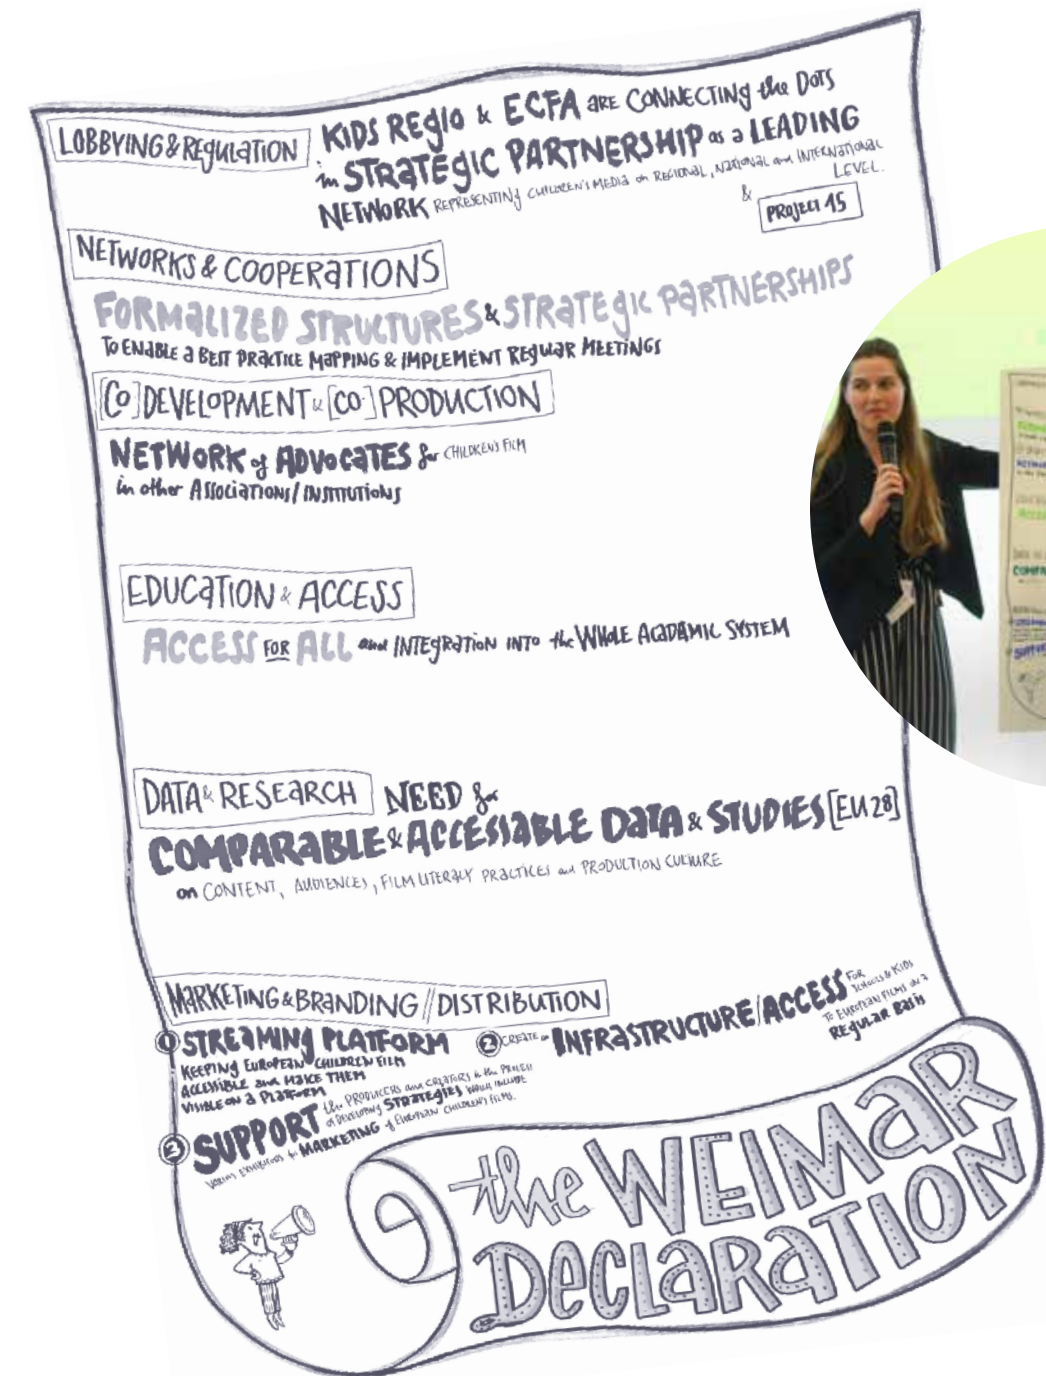 LOBBYING & REGULATION
KIDS REGIO & ECFA ARE CONNECTING the DOTS
in STRATEGIC PARTNERSHIP as a LEADING
NETWORK REPRESENTING CHILDREN'S MEDIA on REGIONAL, NATIONAL and INTERNATIONAL
LEVEL.
&
PROJECT 15
NETWORKS & COOPERATIONS
FORMALIZED STRUCTURES & STRATEGIC PARTNERSHIPS
TO ENABLE a BEST PRACTICE MAPPING & IMPLEMENT REGULAR MEETINGS
[CO] DEVELOPMENT & [CO-] PRODUCTION
NETWORK of ADVOCATES for CHILDREN'S FILM
in other ASSOCIATIONS/INSTITUTIONS
EDUCATION & ACCESS
ACCESS FOR ALL and INTEGRATION INTO the WHOLE ACADAMIC SYSTEM
DATA & RESEARCH
NEED for
COMPARABLE & ACCESSABLE DATA & STUDIES [EU 28]
on CONTENT, AUDIENCES, FILM LITERACY PRACTICES and PRODUCTION CULTURE
MARKETING & BRANDING // DISTRIBUTION
1 STREAMING PLATFORM
KEEPING EUROPEAN CHILDREN FILM
ACCESSIBLE and MAKE THEM
VISIBLE ON a PLATFORM
2 CREATE INFRASTRUCTURE/ACCESS FOR
SCHOOLS & KIDS
TO EUROPEAN FILMS ON A
REGULAR BASIS
3 SUPPORT the PRODUCERS and CREATORS in the PROCESS
of DEVELOPING STRATEGIES WHICH INCLUDE
VARIOUS EXHIBITORS for MARKETING of EUROPEAN CHILDREN'S FILMS.
the WEIMAR
DECLARATION